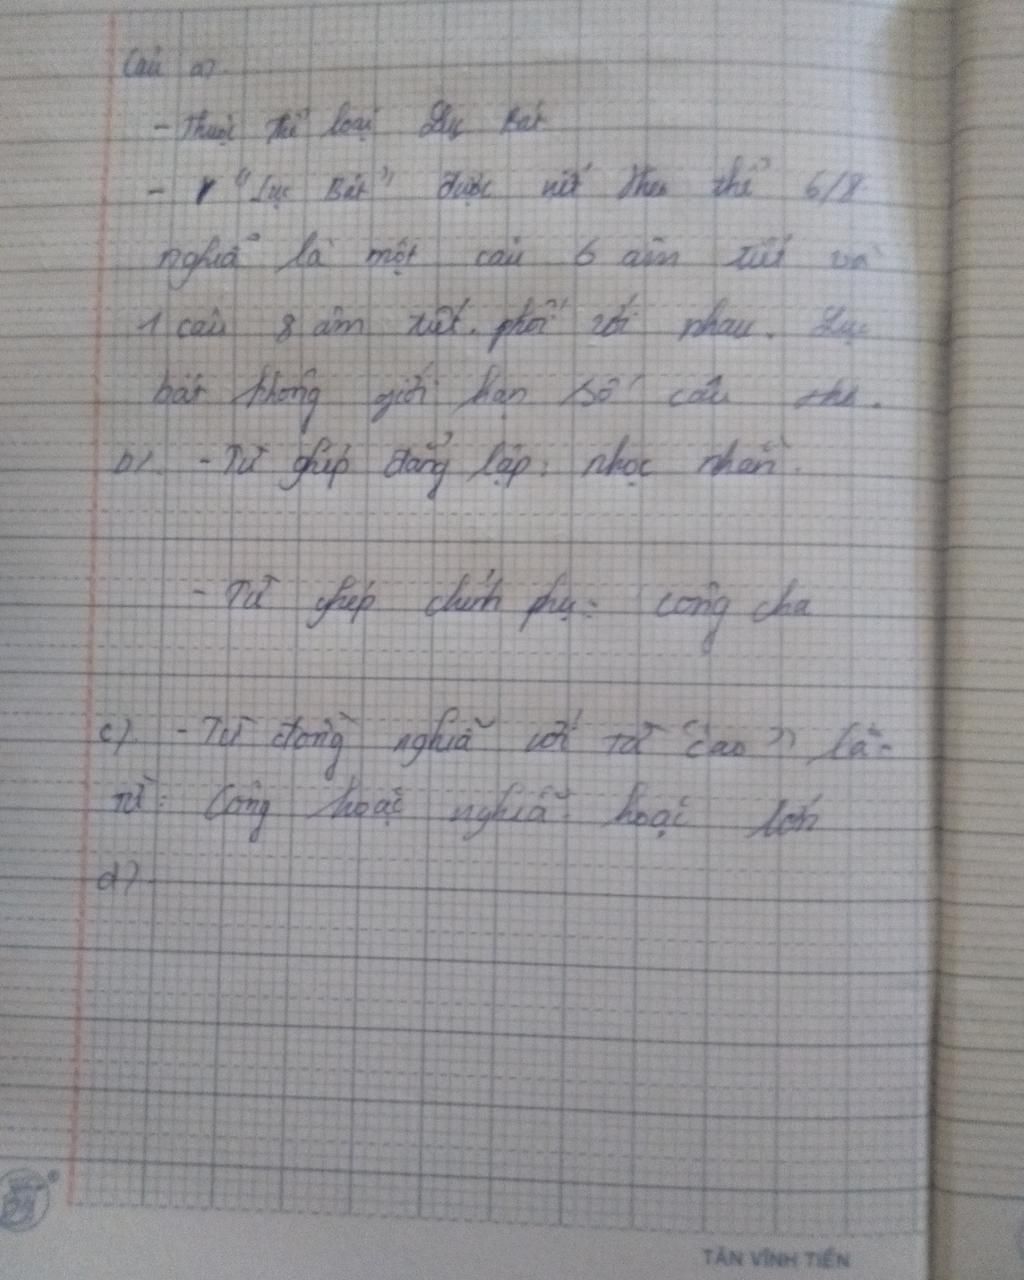 Câu a)
- Thuộc thể loại Lục Bát
- "Lục Bát" được viết theo thể 6/8
nghĩa là một câu 6 âm tiết và
1 câu 8 âm tiết. phối với nhau. Lục
bát không giới hạn số câu thơ.
b) - Từ ghép đẳng lập: nhọc nhằn.
- Từ ghép chính phụ: công cha
c) - Từ đồng nghĩa với từ "cao" là:
từ: Công hoặc nghĩa hoặc lớn
d)
TÂN VĨNH TIẾN